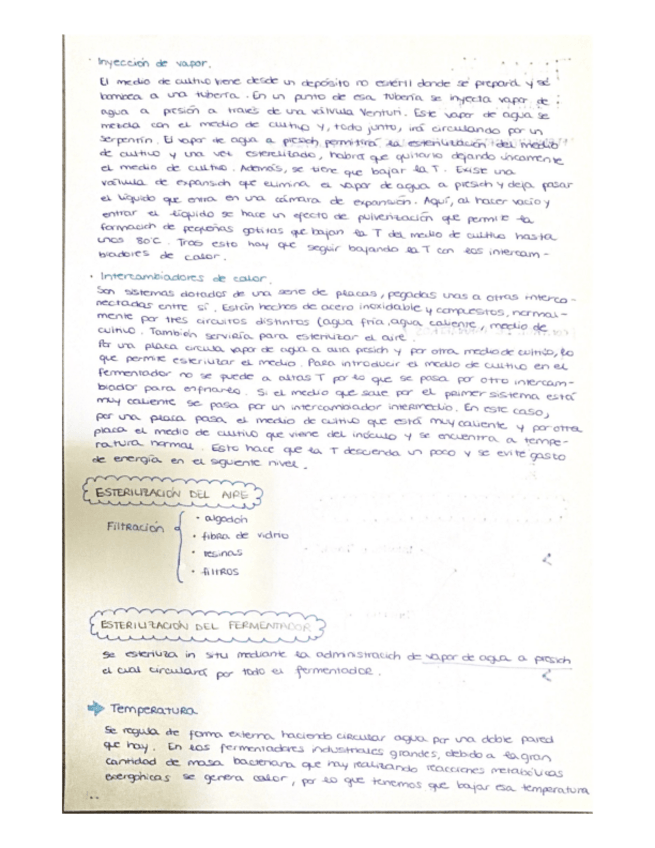 · Inyección de vapor.
El medio de cultivo viene desde un depósito no estéril donde se prepara y se
bombea a una tubería. En un punto de esa tubería se inyecta vapor de
agua a presión a través de una válvula Venturi. Este vapor de agua se
mezcla con el medio de cultivo y, todo junto, irá circulando por un
serpentín. El vapor de agua a presión permitirá la esterilización del medio
de cultivo y una vez esterilizado, habrá que quitarlo dejando únicamente
el medio de cultivo. Además, se tiene que bajar la T. Existe una
válvula de expansión que elimina el vapor de agua a presión y deja pasar
el líquido que entra en una cámara de expansión. Aquí, al hacer vacío y
entrar el líquido se hace un efecto de pulverización que permite la
formación de pequeñas gotitas que bajan la T del medio de cultivo hasta
unos 80°C. Tras esto hay que seguir bajando la T con los intercam-
biadores de calor.
· Intercambiadores de calor.
Son sistemas dotados de una serie de placas, pegadas unas a otras interco-
nectadas entre sí. Están hechos de acero inoxidable y compuestos, normal-
mente por tres circuitos distintos (agua fría, agua caliente, medio de
cultivo. También serviría para esterilizar el aire.
Por una placa circula vapor de agua a alta presión y por otra medio de cultivo, lo
que permite esterilizar el medio. Para introducir el medio de cultivo en el
fermentador no se puede a altas T por lo que se pasa por otro intercam-
biador para enfriarlo. Si el medio que sale por el primer sistema está
muy caliente se pasa por un intercambiador intermedio. En este caso,
por una placa pasa el medio de cultivo que está muy caliente y por otra
placa el medio de cultivo que viene del inóculo y se encuentra a tempe-
ratura normal. Esto hace que la T descienda un poco y se evite gasto
de energía en el siguiente nivel.
ESTERILIZACIÓN DEL AIRE
Filtración
· algodón
· fibra de vidrio
· resinas
· filtros
ESTERILIZACIÓN DEL FERMENTADOR
Se esteriliza in situ mediante la administración de vapor de agua a presión
el cual circulará por todo el fermentador.
Temperatura
Se regula de forma externa haciendo circular agua por una doble pared
que hay. En los fermentadores industriales grandes, debido a la gran
cantidad de masa bacteriana que hay realizando reacciones metabólicas
exergónicas se genera calor, por lo que tenemos que bajar esa temperatura